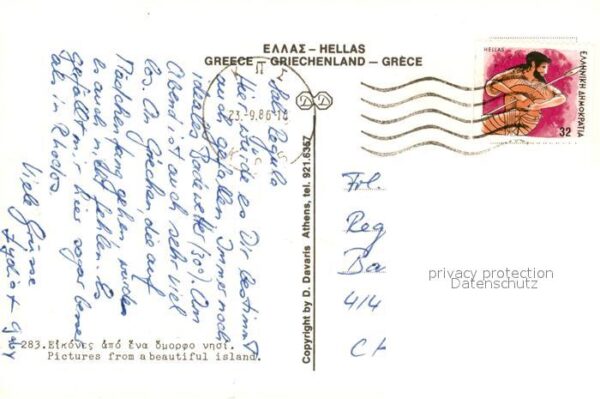 ΕΛΛΑΣ – HELLAS
GREECE – GRIECHENLAND – GRÈCE
HELLAS
ΕΛΛΗΝΙΚΗ ΔΗΜΟΚΡΑΤΙΑ
32
23.-9.86-14
Regula
Hier würde es Dir bestimmt
auch gefallen. Immer noch
ideales Badewetter (30°). Am
Abend ist auch sehr viel
los. An Griechen die auf
Mädchenfang gehen würden
es auch nicht fehlen. Es
gefällt mir hier sogar besser
als in Rhodos.
Viele Grüsse
Copyright by D. Davaris Athens, tel. 921.6357
Frl.
Reg
Ba
414
CH
privacy protection
Datenschutz
283.Εἰκόνες ἀπό ἕνα ὄμορφο νησί.
Pictures from a beautiful island.